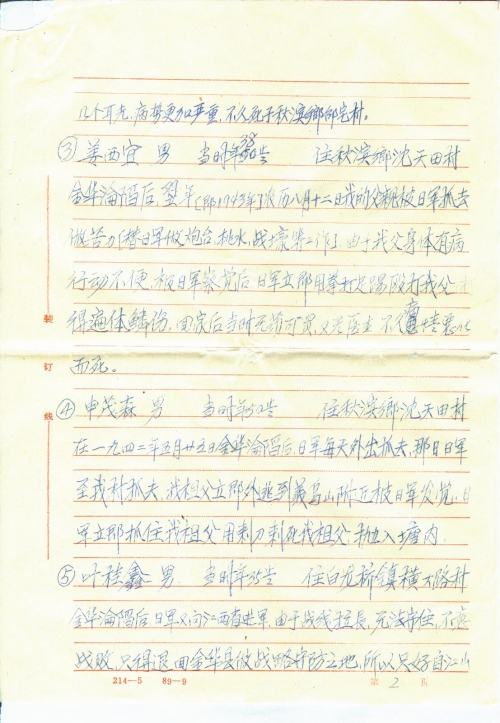 几个耳光，病势更加严重，不久死于秋滨乡邵宅村。
③ 姜西宜 男 当时年38岁 住秋滨乡沈天田村
金华沦陷后，翌年（即1943年）农历八月十二日我的父亲被日军抓去
做苦力（替日军做炮台，挑水，战壕等工作）由于我父身体有病
行动不便，被日军察觉后，日军立即用拳打足踢殴打我父
得遍体鳞伤，回家后当时无药可买，又无医生 不久 情恶化
而死。
④ 申茂森 男 当时年50岁 住秋滨乡沈天田村
在一九四二年五月廿五日金华沦陷后，日军每天外出抓夫，那日日军
至我村抓夫，我祖父立即外逃到 山附近被日军发觉，日
军立即抓住我祖父用刺刀刺死我祖父，抛入塘内。
⑤ 叶桂鑫 男 当时年35岁 住白龙桥镇横大路村
金华沦陷后日军又向江西省进军，由于战线拉长，无法守住，不
战败，只得退回金华县做战略守防之地，所以只好自江山
装
订
线
214—5 89—9
第 2 页